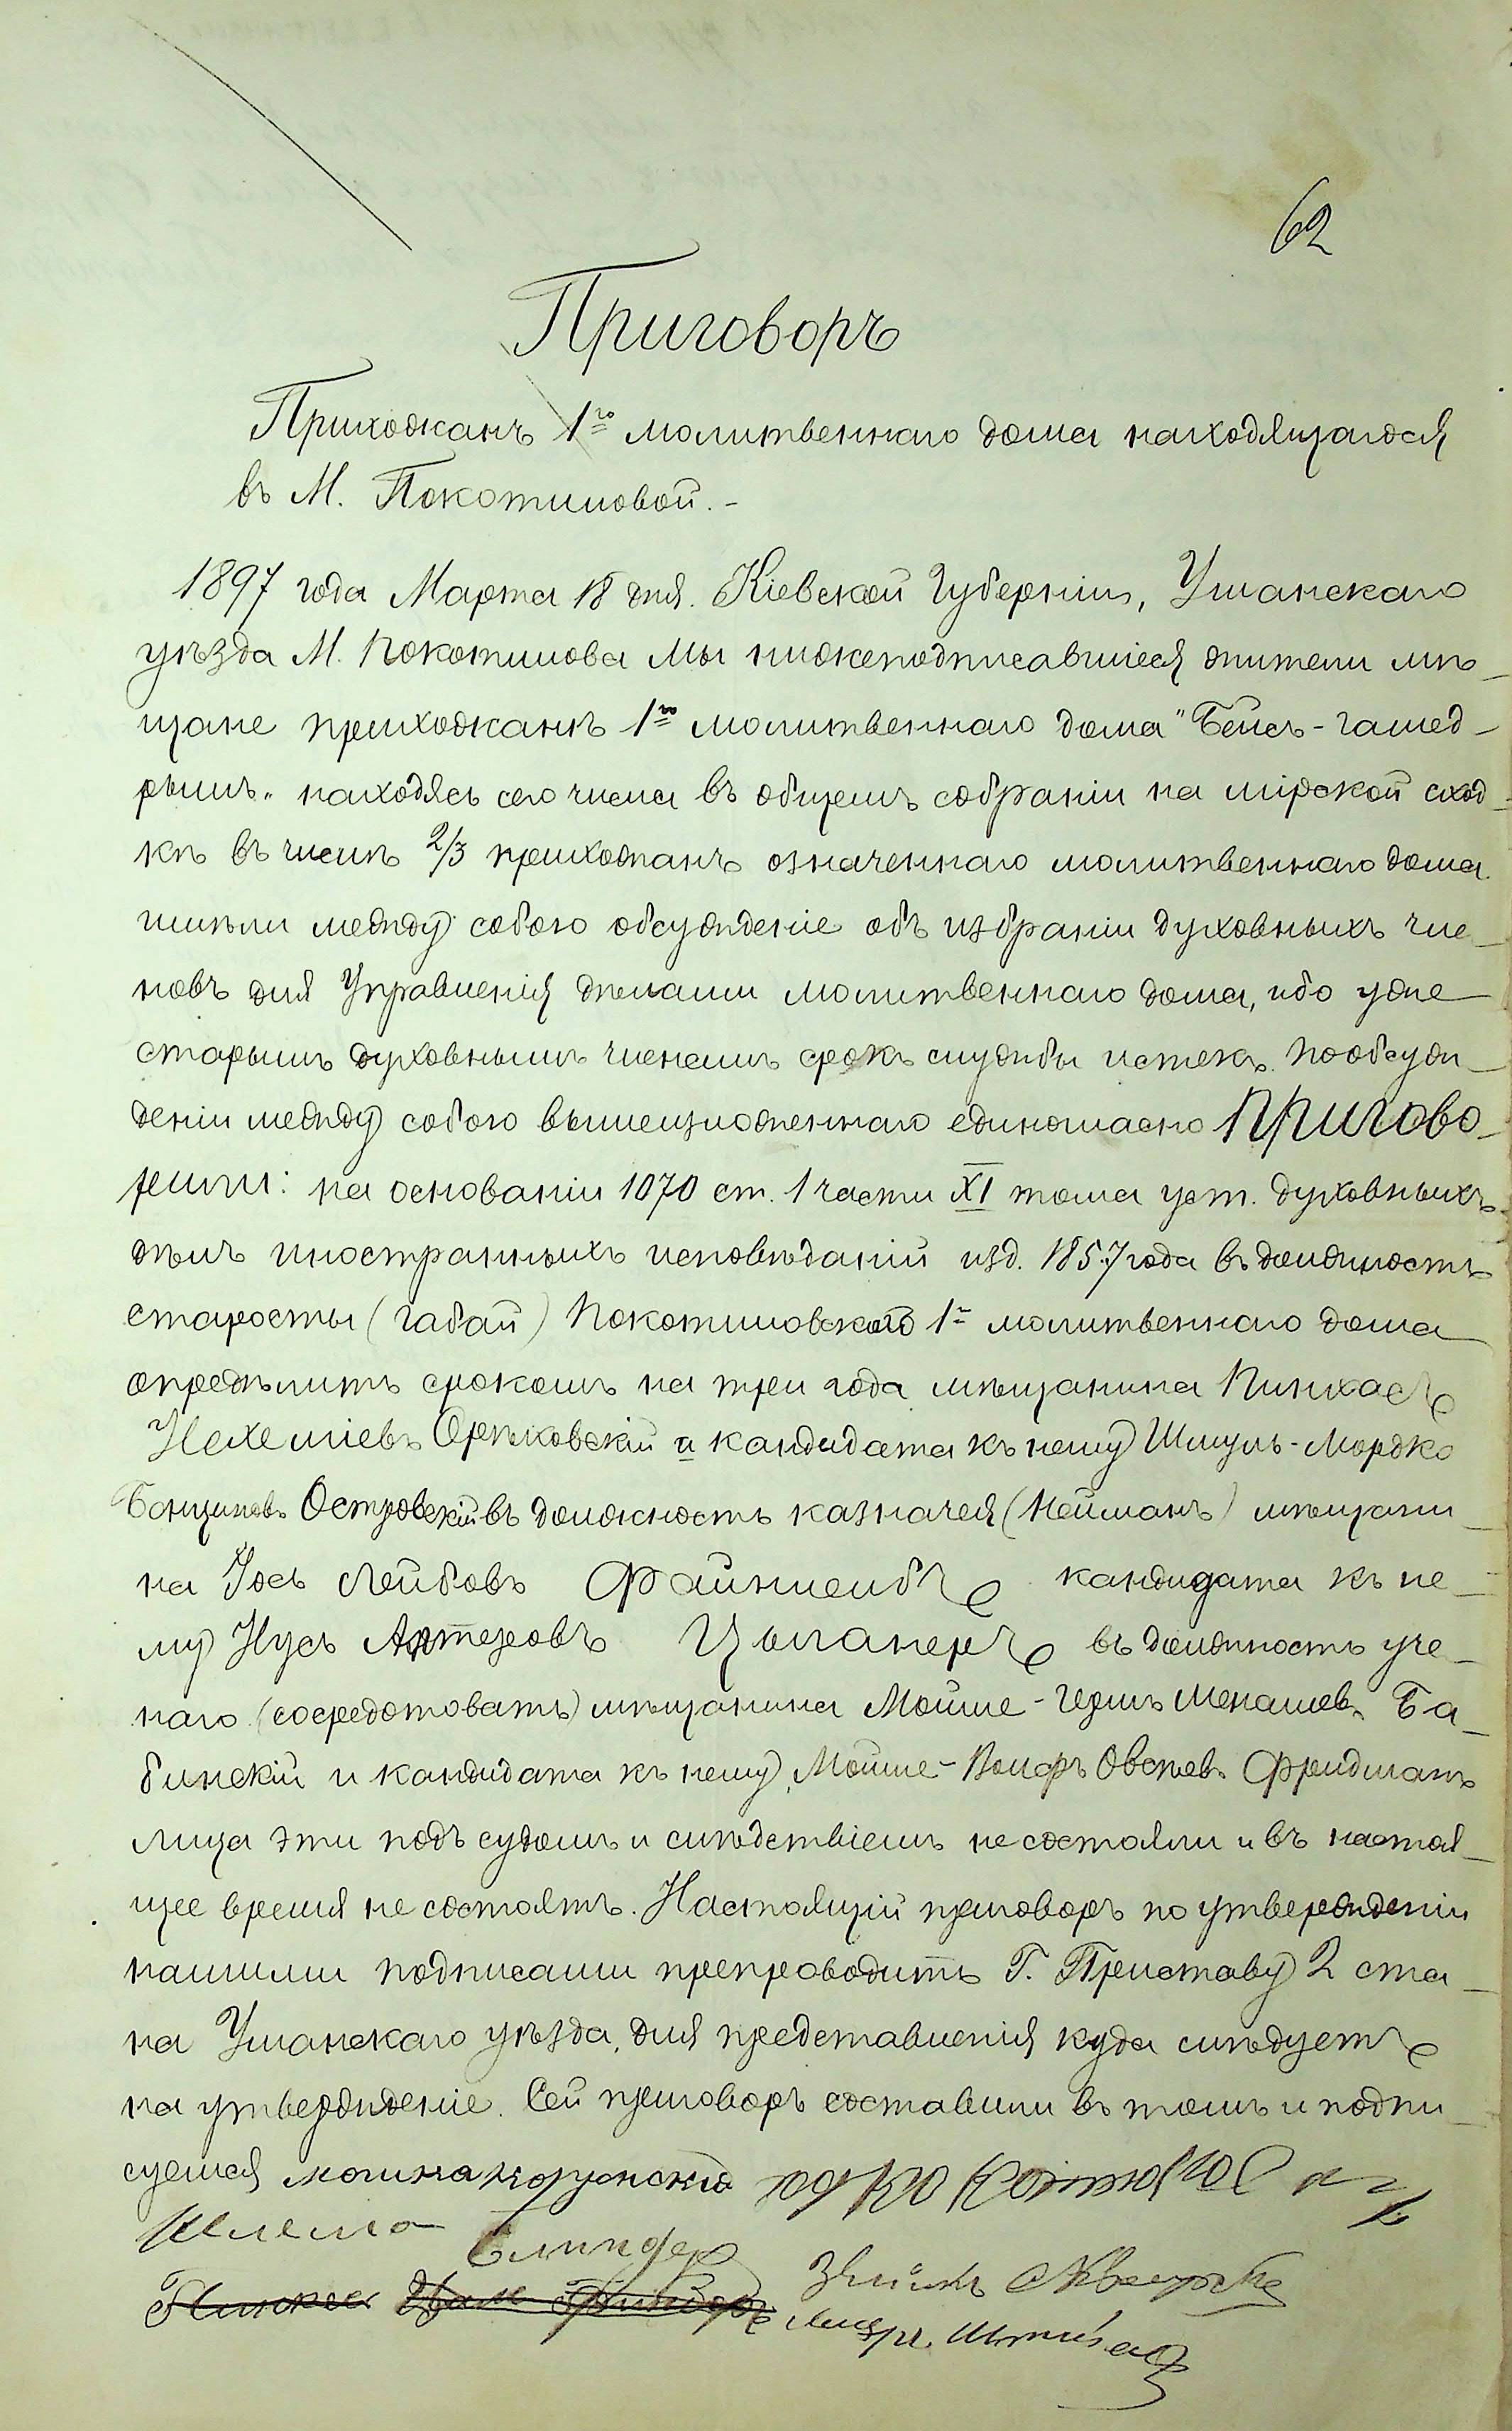 62
Приговоръ
Прихожанъ 1го молитвеннаго дома находящагося
въ М. Покотиловой.-
1897 года Марта 18 дня. Кіевской Губерніи, Уманскаго
уѣзда М. Покотилова Мы нижеподписавшіеся жители мѣ-
щане прихожанъ 1го молитвеннаго дома "Бейсъ-гамед-
рышъ" находясь сего числа въ общемъ собраніи на мірской сход-
кѣ въ числѣ 2/3 прихожанъ означеннаго молитвеннаго дома
имѣли между собою обсужденіе объ избраніи духовныхъ чле-
новъ для Управленія дѣлами молитвеннаго дома, ибо уже
старымъ духовнымъ членамъ срокъ службы истекъ. По обсуж-
деніи между собою вышеизложеннаго единогласно Пригово-
рили: на основаніи 1070 ст. 1 части XI тома уст. духовныхъ
дѣлъ иностранныхъ исповѣданій изд. 1857 года въ должность
старосты (габай) Покотиловского 1го молитвеннаго дома
опредѣлить срокомъ на три года мѣщанина Пинхасъ
Нехеміевъ Орѣховскій и кандидата къ нему Шмуль-Мордко
Островскій въ должность казначея (Нейманъ) мѣщани-
на Іось Лейбовъ Файнлейбъ кандидата къ не-
му Нусь Цыганеръ въ должность уче-
наго (сосредотовать) мѣщанина Мойше-Гершъ Менашевъ Ба-
бинскій и кандидата къ нему Мойше-Вольфъ Овсѣевъ Фридманъ
лица эти подъ судомъ и слѣдствіемъ не состояли и въ настоя-
щее время не состоятъ. Настоящій приговоръ по утвержденіи
нашими подписами препроводить Г. Приставу 2 ста-
на Уманскаго уѣзда, для представленія куда слѣдуетъ
на утвержденіе. Сей приговоръ составили въ томъ и подпи-
суемся
Шлема Блиндер